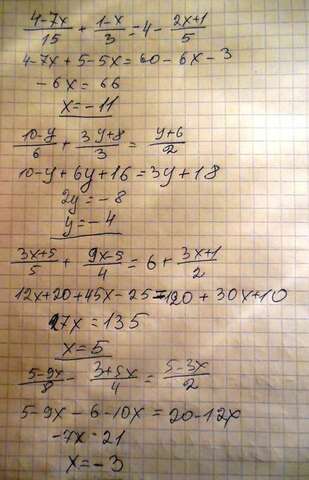 (4-7x)/15 + (1-x)/3 = 4 - (2x+1)/5
4-7x+5-5x=60-6x-3
-6x = 66
x=-11
(10-y)/6 + (3y+8)/3 = (y+6)/2
10-y+6y+16=3y+18
2y=-8
y=-4
(3x+5)/5 + (9x-5)/4 = 6 + (3x+1)/2
12x+20+45x-25=120+30x+10
27x=135
x=5
(5-9x)/8 - (3+5x)/4 = (5-3x)/2
5-9x-6-10x=20-12x
-7x=21
x=-3